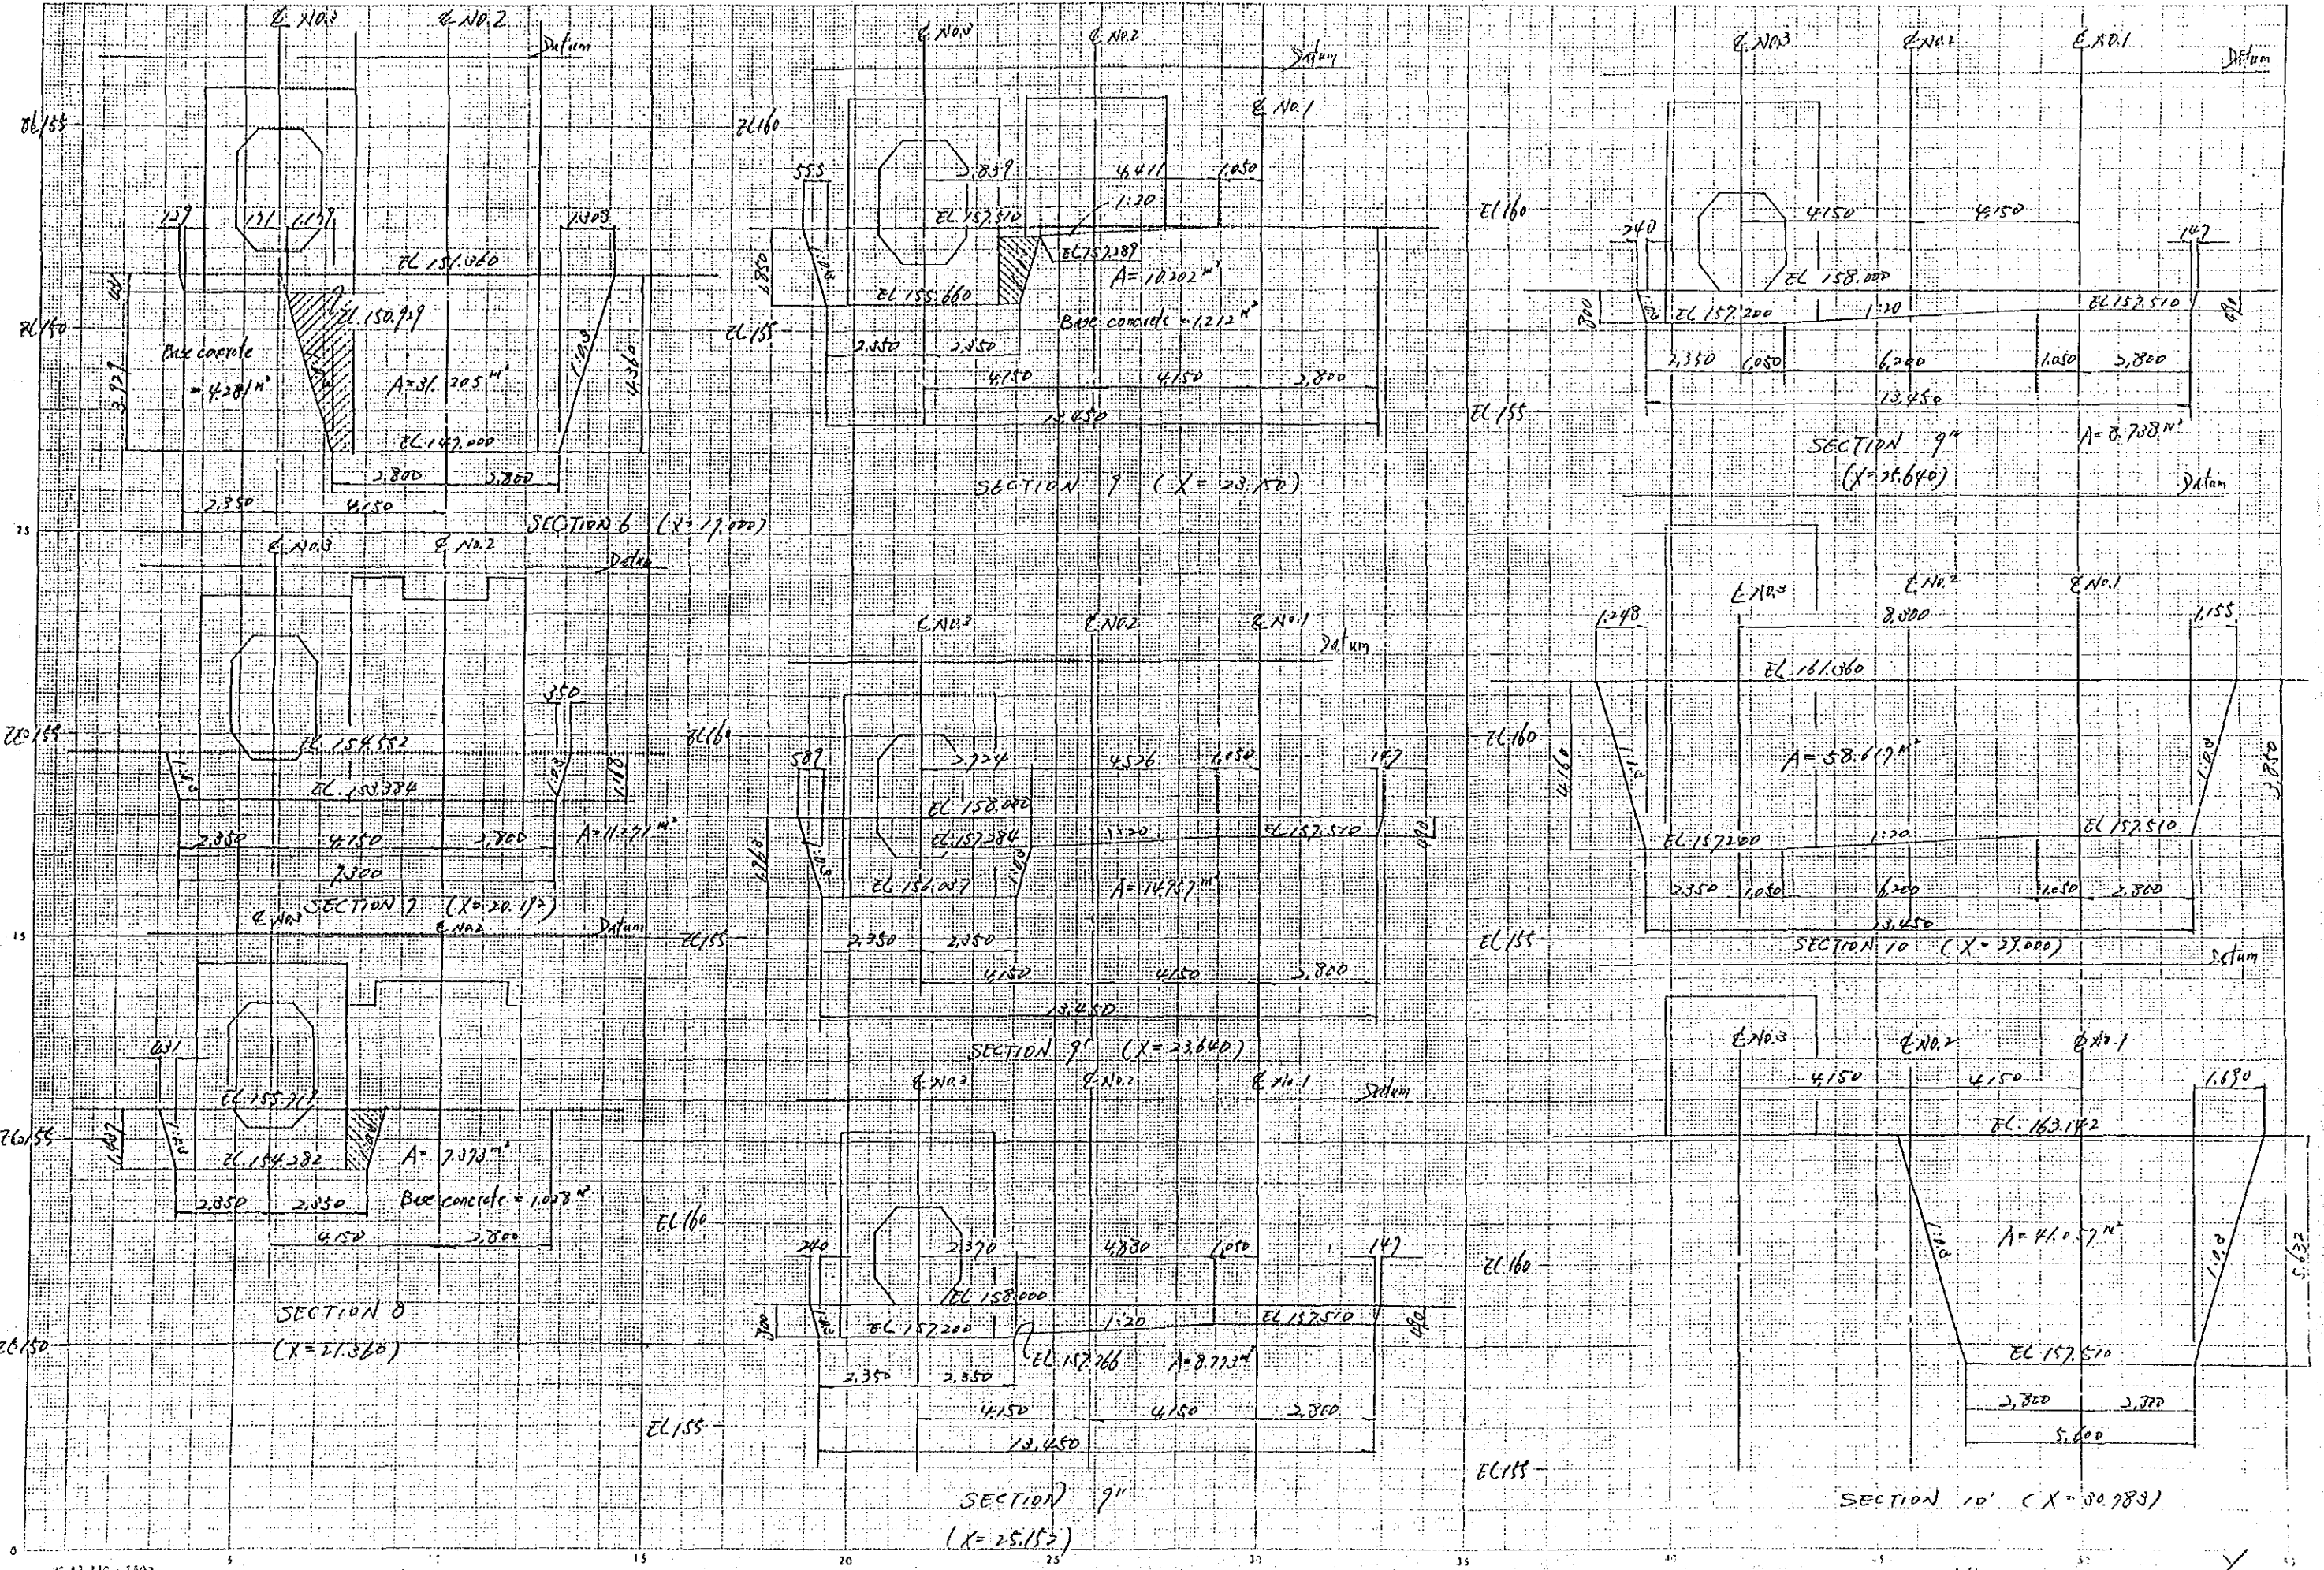 ℄ NO.3 ℄ NO.2
Datum
EL155
1.309
EL 151.360
EL 150.929
EL150
Base concrete
= 4.281 M²
3.929
A=31.205 M²
1:0.3
4.360
EL 147.000
2.800 2.800
2.350 4.150
SECTION 6 (X=17.000)
℄ NO.3 ℄ NO.2
Datum
350
EL 154.552
EL155
1:0.3
1:0.3
1.168
EL. 153.384
2.350 4.150 2.800
A=11.271 M²
9.300
SECTION 7 (X=20.192)
℄ NO.3 ℄ NO.2
Datum
15
431
EL 155.719
EL155
1.437
1:0.3
EL 154.282
A= 7.373 M²
2.350 2.350
Base concrete = 1.028 M²
4.150 2.800
EL150
SECTION 8
(X=21.360)
℄ NO.3 ℄ NO.2
Datum
℄ NO.1
EL160
555
2.839 4.411 1.050
1:20
EL 157.510
EL 157.289
1.850
1:0.3
A=10.202 M²
EL 155.660
EL155
Base concrete = 1.212 M²
2.350 2.350
4.150 4.150 2.800
13.450
SECTION 9 (X=23.150)
℄ NO.3 ℄ NO.2 ℄ NO.1
Datum
EL160
589
2.724 4.526 1.050 147
EL 158.000
EL 157.284
1:20
EL 157.510
490
1.963
1:0.3
1:0.3
EL 156.037
A=14.957 M²
EL155
2.350 2.350
4.150 4.150 2.800
13.450
SECTION 9' (X=23.640)
℄ NO.3 ℄ NO.2 ℄ NO.1
Datum
EL160
240
2.370 4.830 1.050 147
EL 158.000
800
1:0.3
EL 157.200
1:20
EL 157.510
490
EL 157.266
A=8.773 M²
2.350 2.350
4.150 4.150 2.800
EL155
13.450
SECTION 9"
(X=25.153)
℄ NO.3 ℄ NO.2 ℄ NO.1
Datum
EL160
240
4.150 4.150
147
EL 158.000
800
1:0.3
EL 157.200
1:20
EL 157.510
490
2.350 1.050 6.200 1.050 2.800
13.450
EL155
A=8.738 M²
SECTION 9'''
(X=25.640)
Datum
℄ NO.3 ℄ NO.2 ℄ NO.1
1.248
8.300
1.155
EL 161.360
EL160
4.160
1:0.3
A=58.617 M²
1:0.3
3.850
EL 157.200
1:20
EL 157.510
2.350 1.050 6.200 1.050 2.800
13.450
EL155
SECTION 10 (X=29.000)
Datum
℄ NO.3 ℄ NO.2 ℄ NO.1
4.150 4.150
1.690
EL. 163.142
EL160
1:0.3
A=41.057 M²
1:0.3
5.632
EL 157.510
2.800 2.800
5.600
EL155
SECTION 10' (X=30.783)
0 5 10 15 20 25 30 35 40 45 50 55